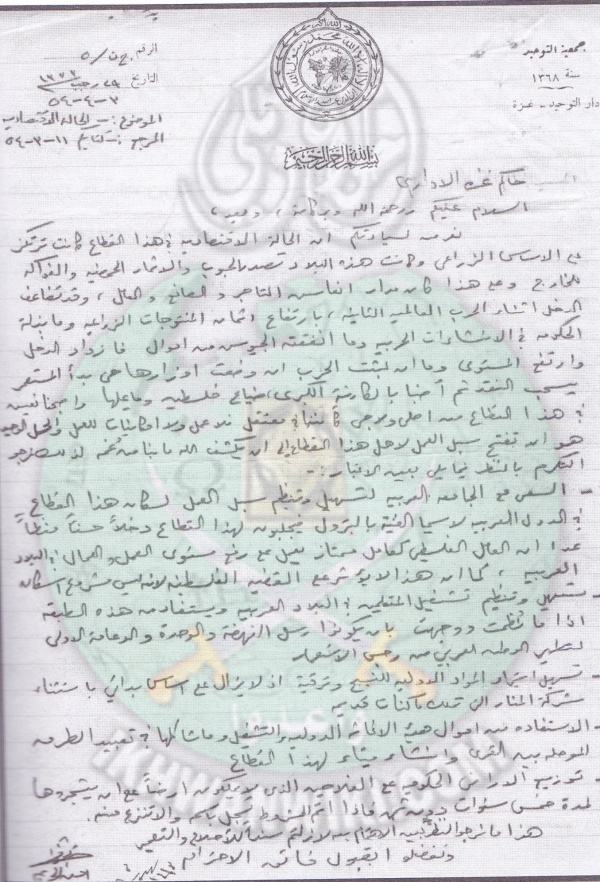 جمعية التوحيد
سنة ١٣٦٨
دار التوحيد - غزة
الرقم ج ت/٥
التاريخ ٢٩ رجب ١٣٧٣
٣-٤-٥٤
الموضوع :- الحالة الاقتصادية
المرجع :- ١١-٣-٥٤
بسم الله الرحمن الرحيم
حاكم غزة الإدارى
السلام عليكم ورحمة الله وبركاته ، وبعد ،
نقدم لسيادتكم ان الحالة الاقتصادية في هذا القطاع كانت ترتكز
على الاساس الزراعي وكانت هذه البلاد تصدر الحبوب والاثمار الحمضية والفواكه
للخارج وعلى هذا كان مدار انفاس التاجر و الصانع و العامل ، وقد تضاعف
الدخل اثناء الحرب العالمية الثانية ، بارتفاع اثمان المنتوجات الزراعية وما بذلته
الحكومة في الانشاءات الحربية وما انفقته الجيوش من اموال فازداد الدخل
وارتفع المستوى وما ان لبثت الحرب ان وضعت اوزارها حتى بدأ المستعمر
يسحب النقد ثم أصبنا بالكارثة الكبرى، ضياع فلسطين وما عليها واصبحنا نعيش
في هذا القطاع من اصلي ولاجئ كأننا في معتقل فلا عمل ولا امكانيات للعمل والحل الوحيد
هو ان تفتح سبل العمل لاهل هذا القطاع الى ان يكشف الله ما بنا من غمة لذلك نرجو
التكرم بالنظر فيما يلي بعين الاعتبار :-
- السعي مع الجامعة العربية لتسهيل وتنظيم سبل العمل لسكان هذا القطاع في
الدول العربية لاسيما الغنية بالبترول فيجلبون لهذا القطاع دخلاً حسناً منظماً
عدا ان العامل الفلسطيني كعامل ممتاز يعمل على رفع مستوى العمل والعمال في البلاد
العربية ، كما ان هذا لا يؤثر على القضية الفلسطينية لانه ليس مشروع اسكان
- تسهيل وتنظيم تشغيل المتعلمين في البلاد العربية ويستفاد من هذه الطبقة
اذا ما نظمت ووجهت بان يكونوا رسل النهضة والوحدة والدعاية الدولي
لتطهير الوطن العربي من رجس الاستعمار
- تسهيل استيراد المواد الاولية للنسيج وترقيته اذ لا يزال على اساس بدائي باستثناء
شركة المنار التي تملك ماكنات حديثة
- الاستفادة من اموال هيئة الاغاثة الدولية والتشغيل وما شاكلها في تعبيد الطرق
الموصلة بين القرى وانشاء ميناء لهذا القطاع
- توزيع الاراضي الحكومية على الفلاحين الذين لا يملكون ارضاً على ان يستثمروها
لمدة خمس سنوات دون ثمن فاذا اتم الشروط تسجل باسمه والا تنزع منه
هذا ما نرجو النظر بعين الاهتمام به لازلتم سنداً للاصلاح والتعمير
وتفضلوا بقبول فائق الاحترام
IKHWANWIKI.COM